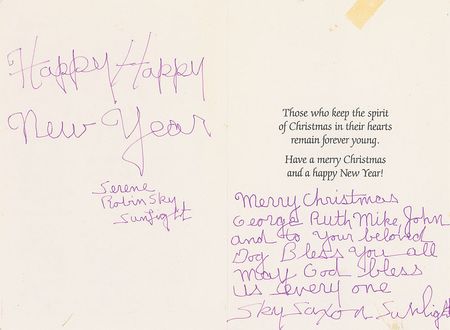 Happy Happy
New Year
Serene
Robin Sky
Sunlight
Those who keep the spirit
of Christmas in their hearts
remain forever young.
Have a merry Christmas
and a happy New Year!
Merry Christmas
George Ruth Mike John
and to your beloved
Dog Bless You all
May God bless
us every one
Sky Saxon Sunlight